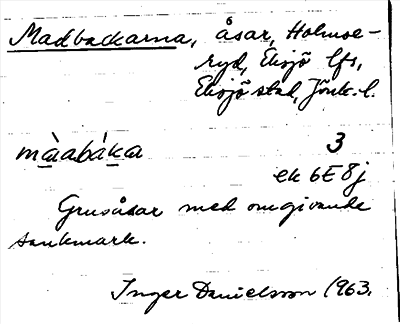 Madbackarna, åsar, Holmse-
ryd, Eksjö lfs,
Eksjö stad, Jönk. l.
màabáka 3
ek 6E 8j
Grusåsar med omgivande
sankmark.
Inger Danielsson 1963.